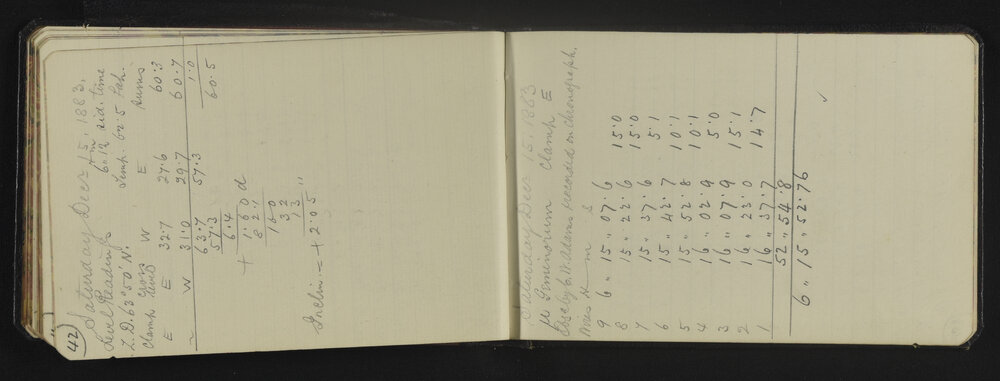 42
Saturday Decr 15. 1883.
Level Reading 6h 12m sid. time
Z.D. 63° 50' N. Temp. 62.5 Fah.
Clamp Cross level W E Sums
E E 32.7 27.6 60.3
W 31.0 29.7 60.7
63.7 57.3 1.0
57.3 60.5
+ 6.4
+ 1.60 d
82.1
160
32
13
Inclin = + 2.05"
Saturday Decr 15. 1883
μ Geminorum Clamp E
Obsd by C. W. Adams & recorded on Chronograph.
Wires H m S
9 6 " 15 " 07.6
8 15 " 22.6 15.0
7 15 " 37.6 15.0
6 15 " 42.7 5.1
5 15 " 52.8 10.1
4 16 " 02.9 10.1
3 16 " 07.9 5.0
2 16 " 23.0 15.1
1 16 " 37.7 14.7
52 " 54.8
6 " 15 " 52.76